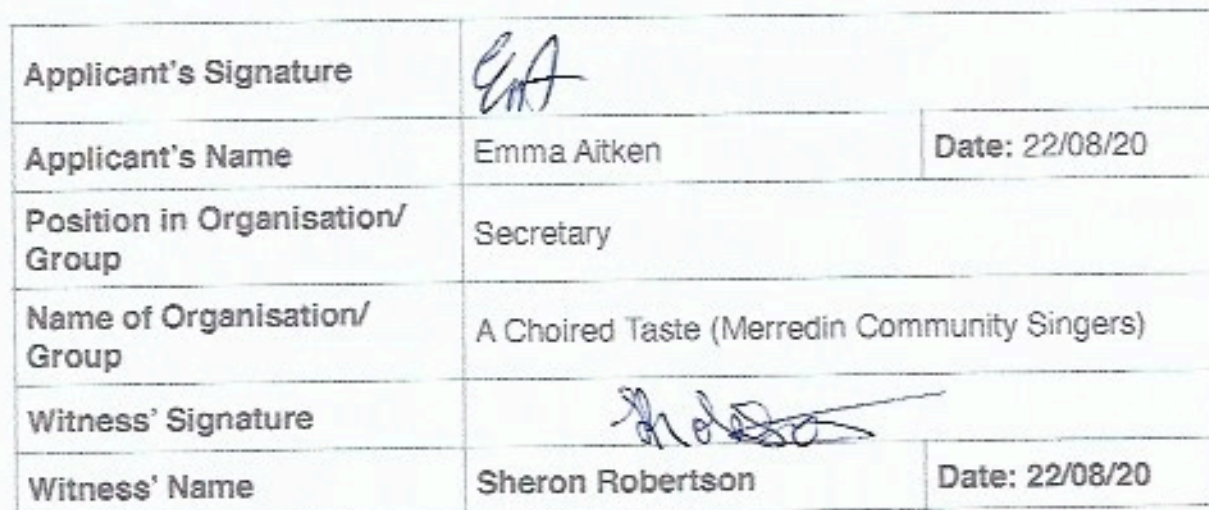 Applicant's Signature
Applicant's Name Emma Aitken Date: 22/08/20
Position in Organisation/
Group Secretary
Name of Organisation/
Group A Choired Taste (Merredin Community Singers)
Witness' Signature
Witness' Name Sheron Robertson Date: 22/08/20